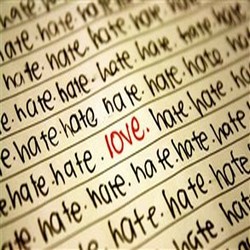 hate hate hate hate
hate · hate · hate · hate · hate
hate · hate hate hate · hate · hate ·
hate · hate hate · hate · hate · hate
hate hate · love. hate hate hate
hate · hate · hate · hate · hate · hate
hate · hate · hate · hate · hate
hate · hate · hate · hate
hate · hate · hate